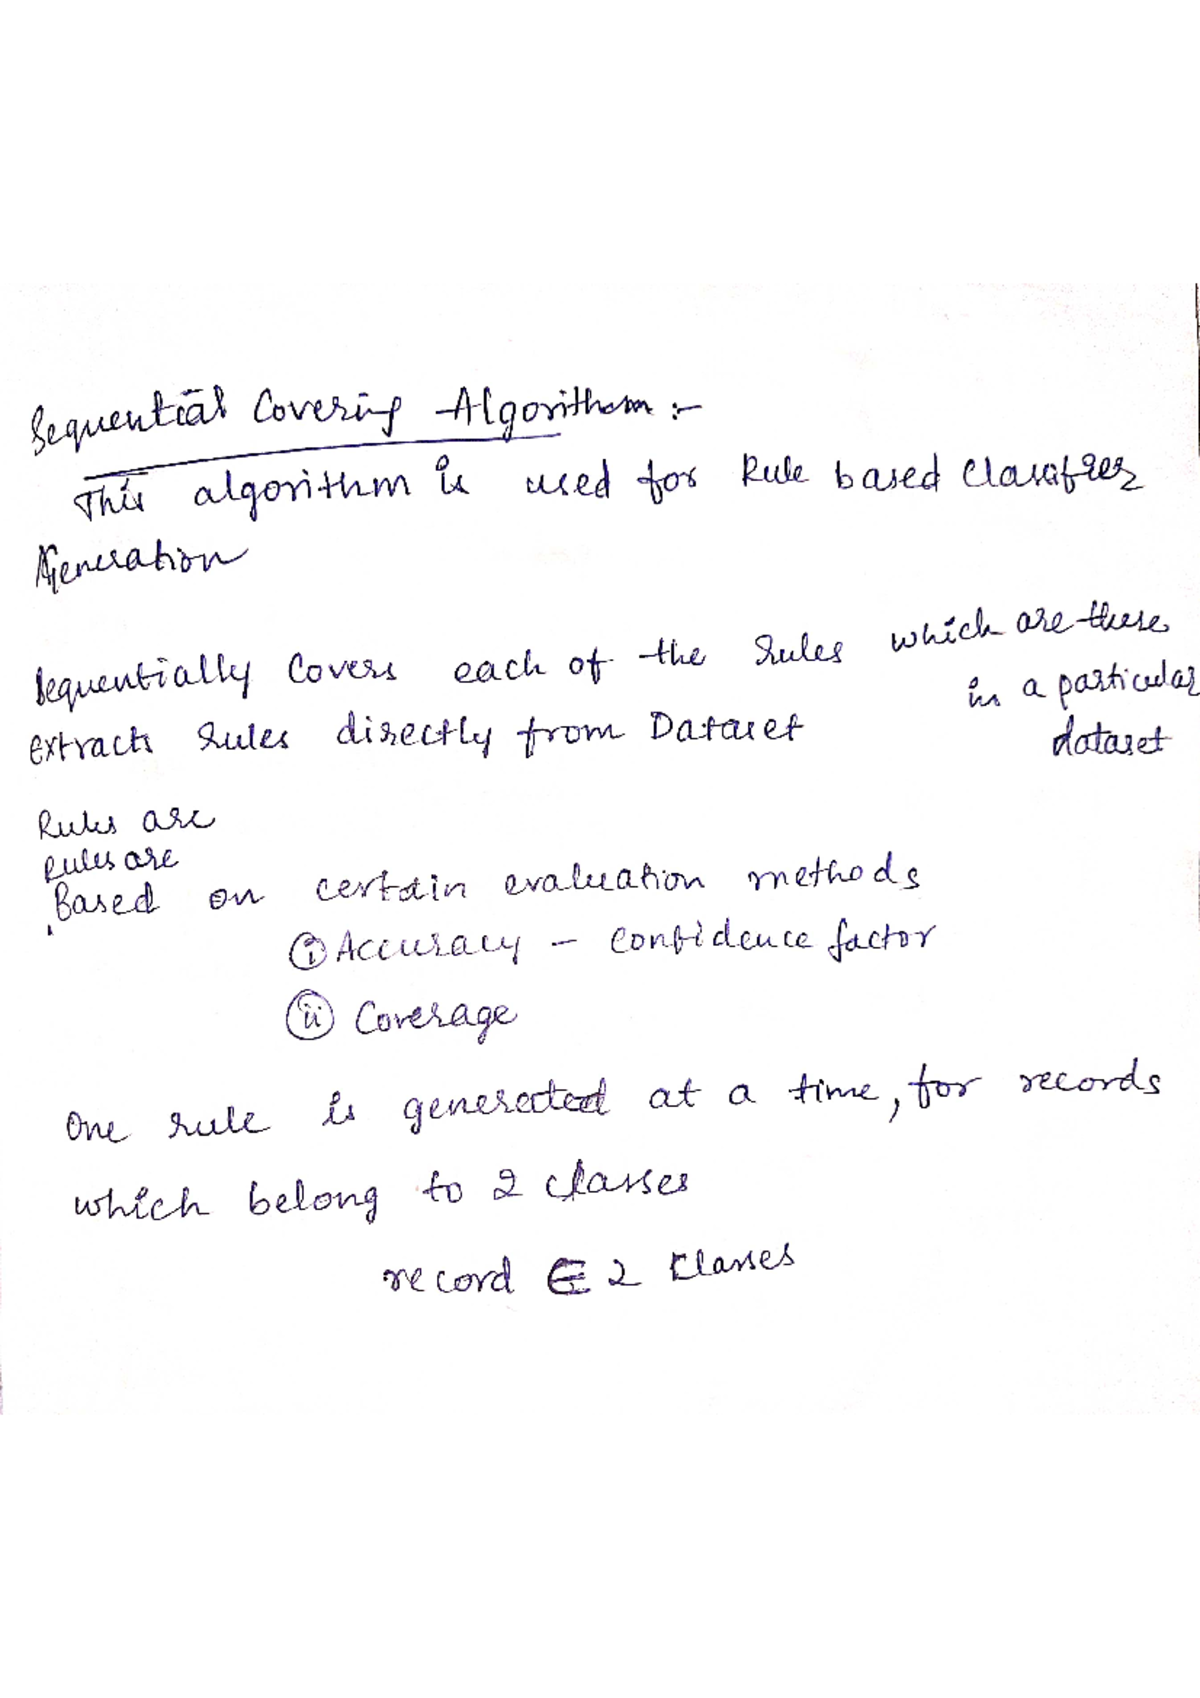 Sequential Covering Algorithom :-
This algorithm is used for Rule based Classifier
Generation
Sequentially Covers each of the rules which are there
in a particular
dataset
extracts rules directly from Dataset
Rules are
Rules are
Based on certain evaluation methods
(i) Accuracy - confidence factor
(ii) Coverage
One rule is generected at a time, for records
which belong to 2 classes
record ∈ 2 Classes